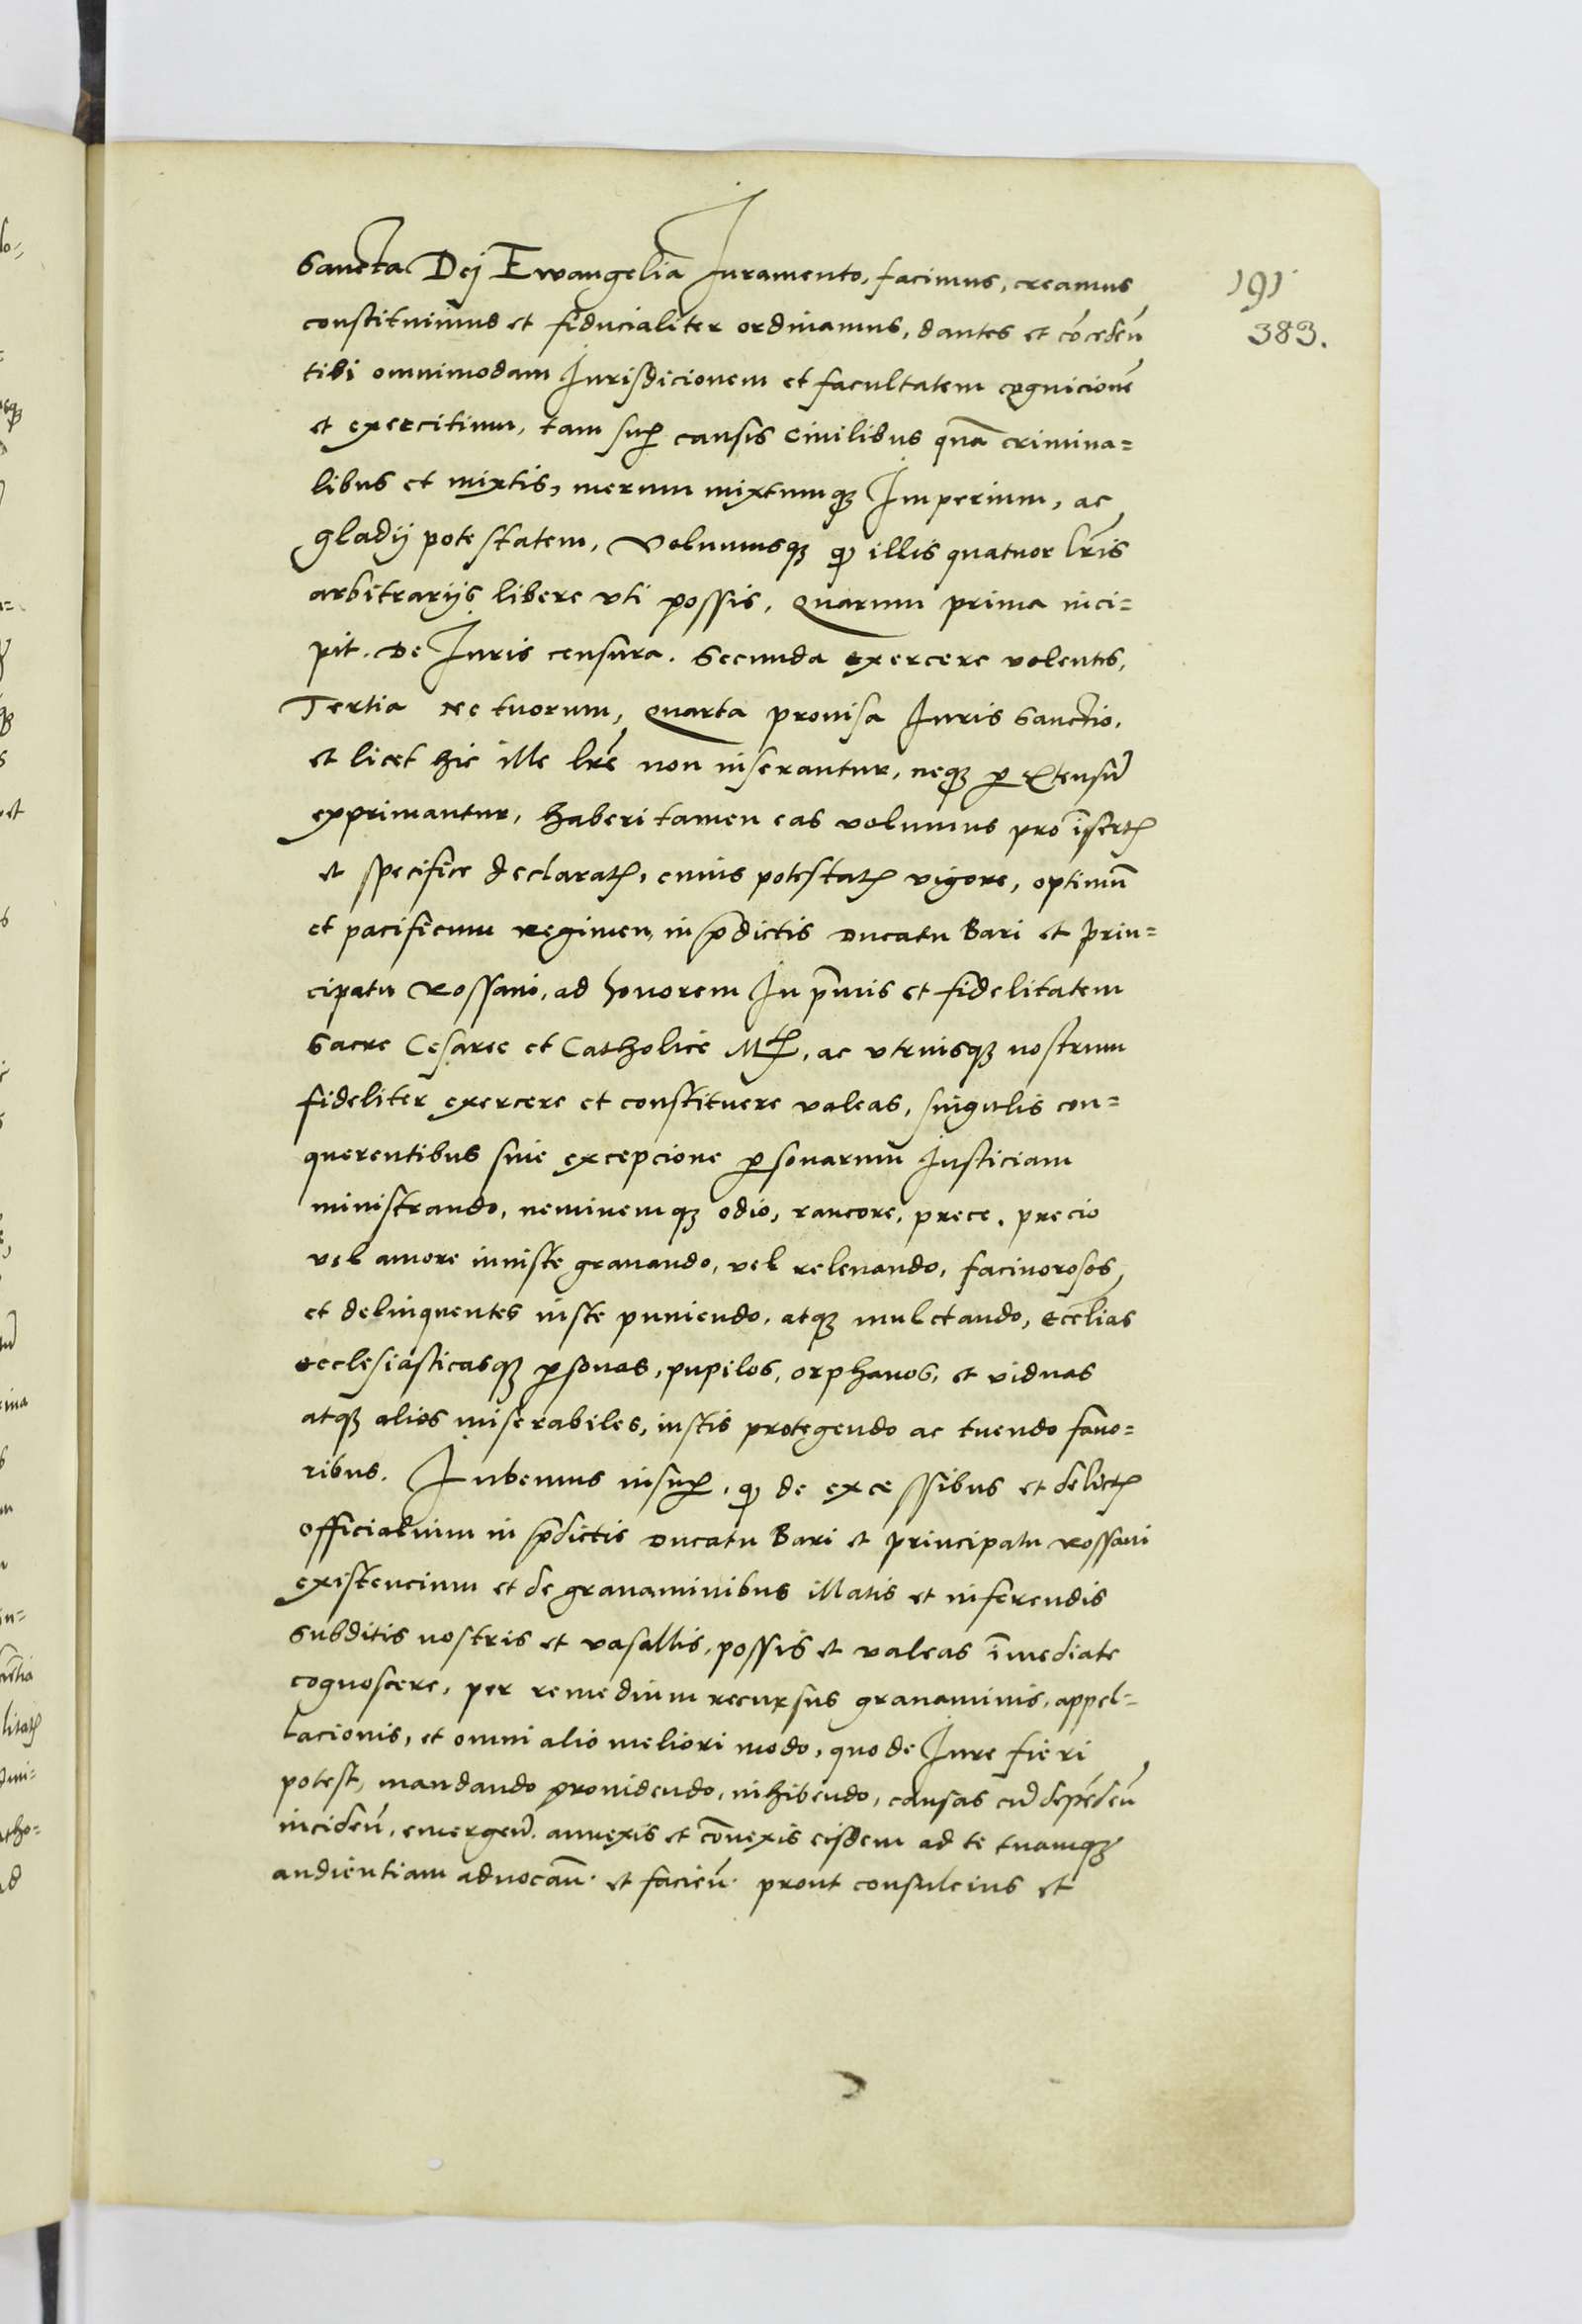 Sancta Dej Ewangelia Iuramento, facimus, creamus
constituimus et fiducialiter ordinamus, dantes et cōcedeñ
tibi omnimodam Iurisdicionem et facultatem cognicionē
et exercitium, tam sup causis Ciuilibus quā crimina=
libus et mixtis, merum mixtumq3 Imperium, ac
gladij potestatem, Volumusq3 q illis quatuor lr̃is
arbitrarijs libere vti possis, Quarum prima inci=
pit. De Iuris censura. Secunda exercere volentes,
Tertia Nec tuorum, Quarta prouisa Iuris Sanctio.
et licet hic ille lr̃e non inserantur, neq3 p Extensū
exprimantur, haberi tamen eas volumus pro īsertꝭ
et specifice declaratꝭ, cuius potestatꝭ vigore, optimū
et pacificum regimen, in p̄dictis Ducatu Bari et Prin=
cipatu Rossani, ad honorem In p̄mis et fidelitatem
Sacre Cesaree et Catholice Mtꝭ, ac vtriusq3 nostrum
fideliter exercere et constituere valeas, singulis con=
querentibus sine excepcione psonarum Iusticiam
ministrando, neminemq3 odio, rancore, prece, precio
vel amore iniuste grauando, vel releuando, facinorosos
et delinquentes iuste puniendo, atq3 mulctando, eccl̄ias
ecclesiasticasq3 psonas, pupilos, orphanos, et viduas
atq3 alios miserabiles, iustis protegendo ac tuendo fauo=
ribus. Iubemus insup, q de excessibus et delictꝭ
officialium in p̄dictis Ducatu Bari et Principatu Rossani
existencium et de grauaminibus illatis et inferendis
Subditis nostris et vasallis, possis et valeas īmediate
cognoscere, per remedium recursus grauaminis, appel=
lacionis, et omni alio meliori modo, quo de Iure fieri
potest, mandando prouidendo, inhibendo, causas cū depēdeñ
incideñ, emergeñ. annexis et cōnexis eisdem ad te tuamq3
audientiam aduocañ. et facieñ. prout consuleius et
191
383.